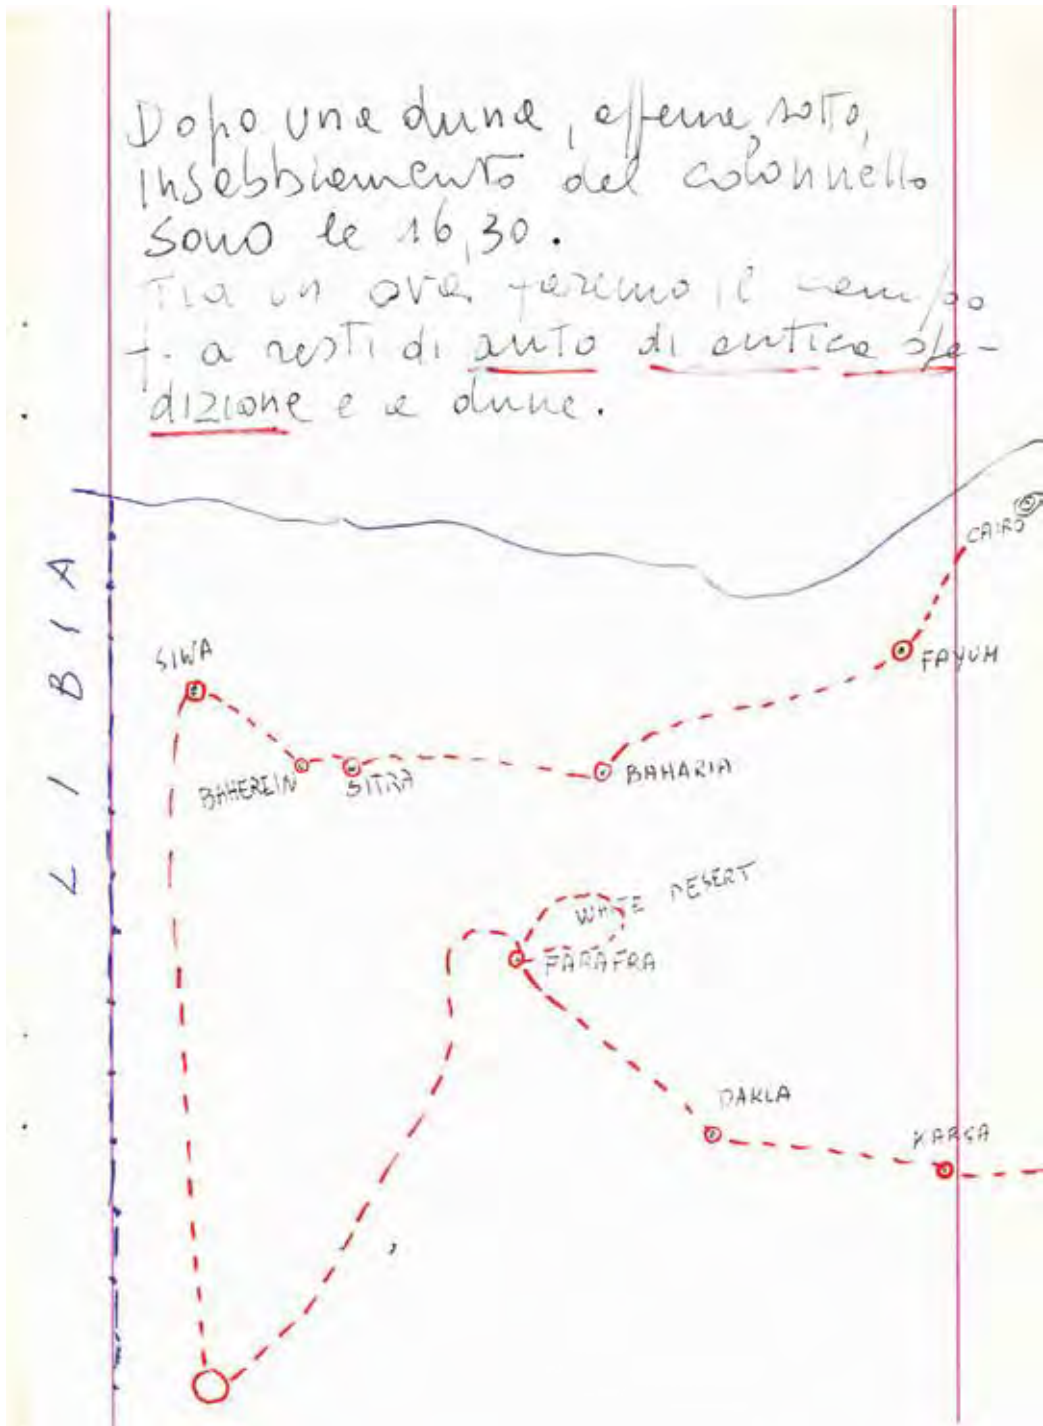 Dopo una duna, appena sotto,
insabbiamento del colonnello
sono le 16,30.
Tra un'ora faremo il campo
a resti di auto di antica spe-
dizione e a dune.
CAIRO
LIBIA
SIWA
FAYUM
BAHEREIN
SITRA
BAHARIA
WHITE DESERT
FARAFRA
DAKLA
KARGA